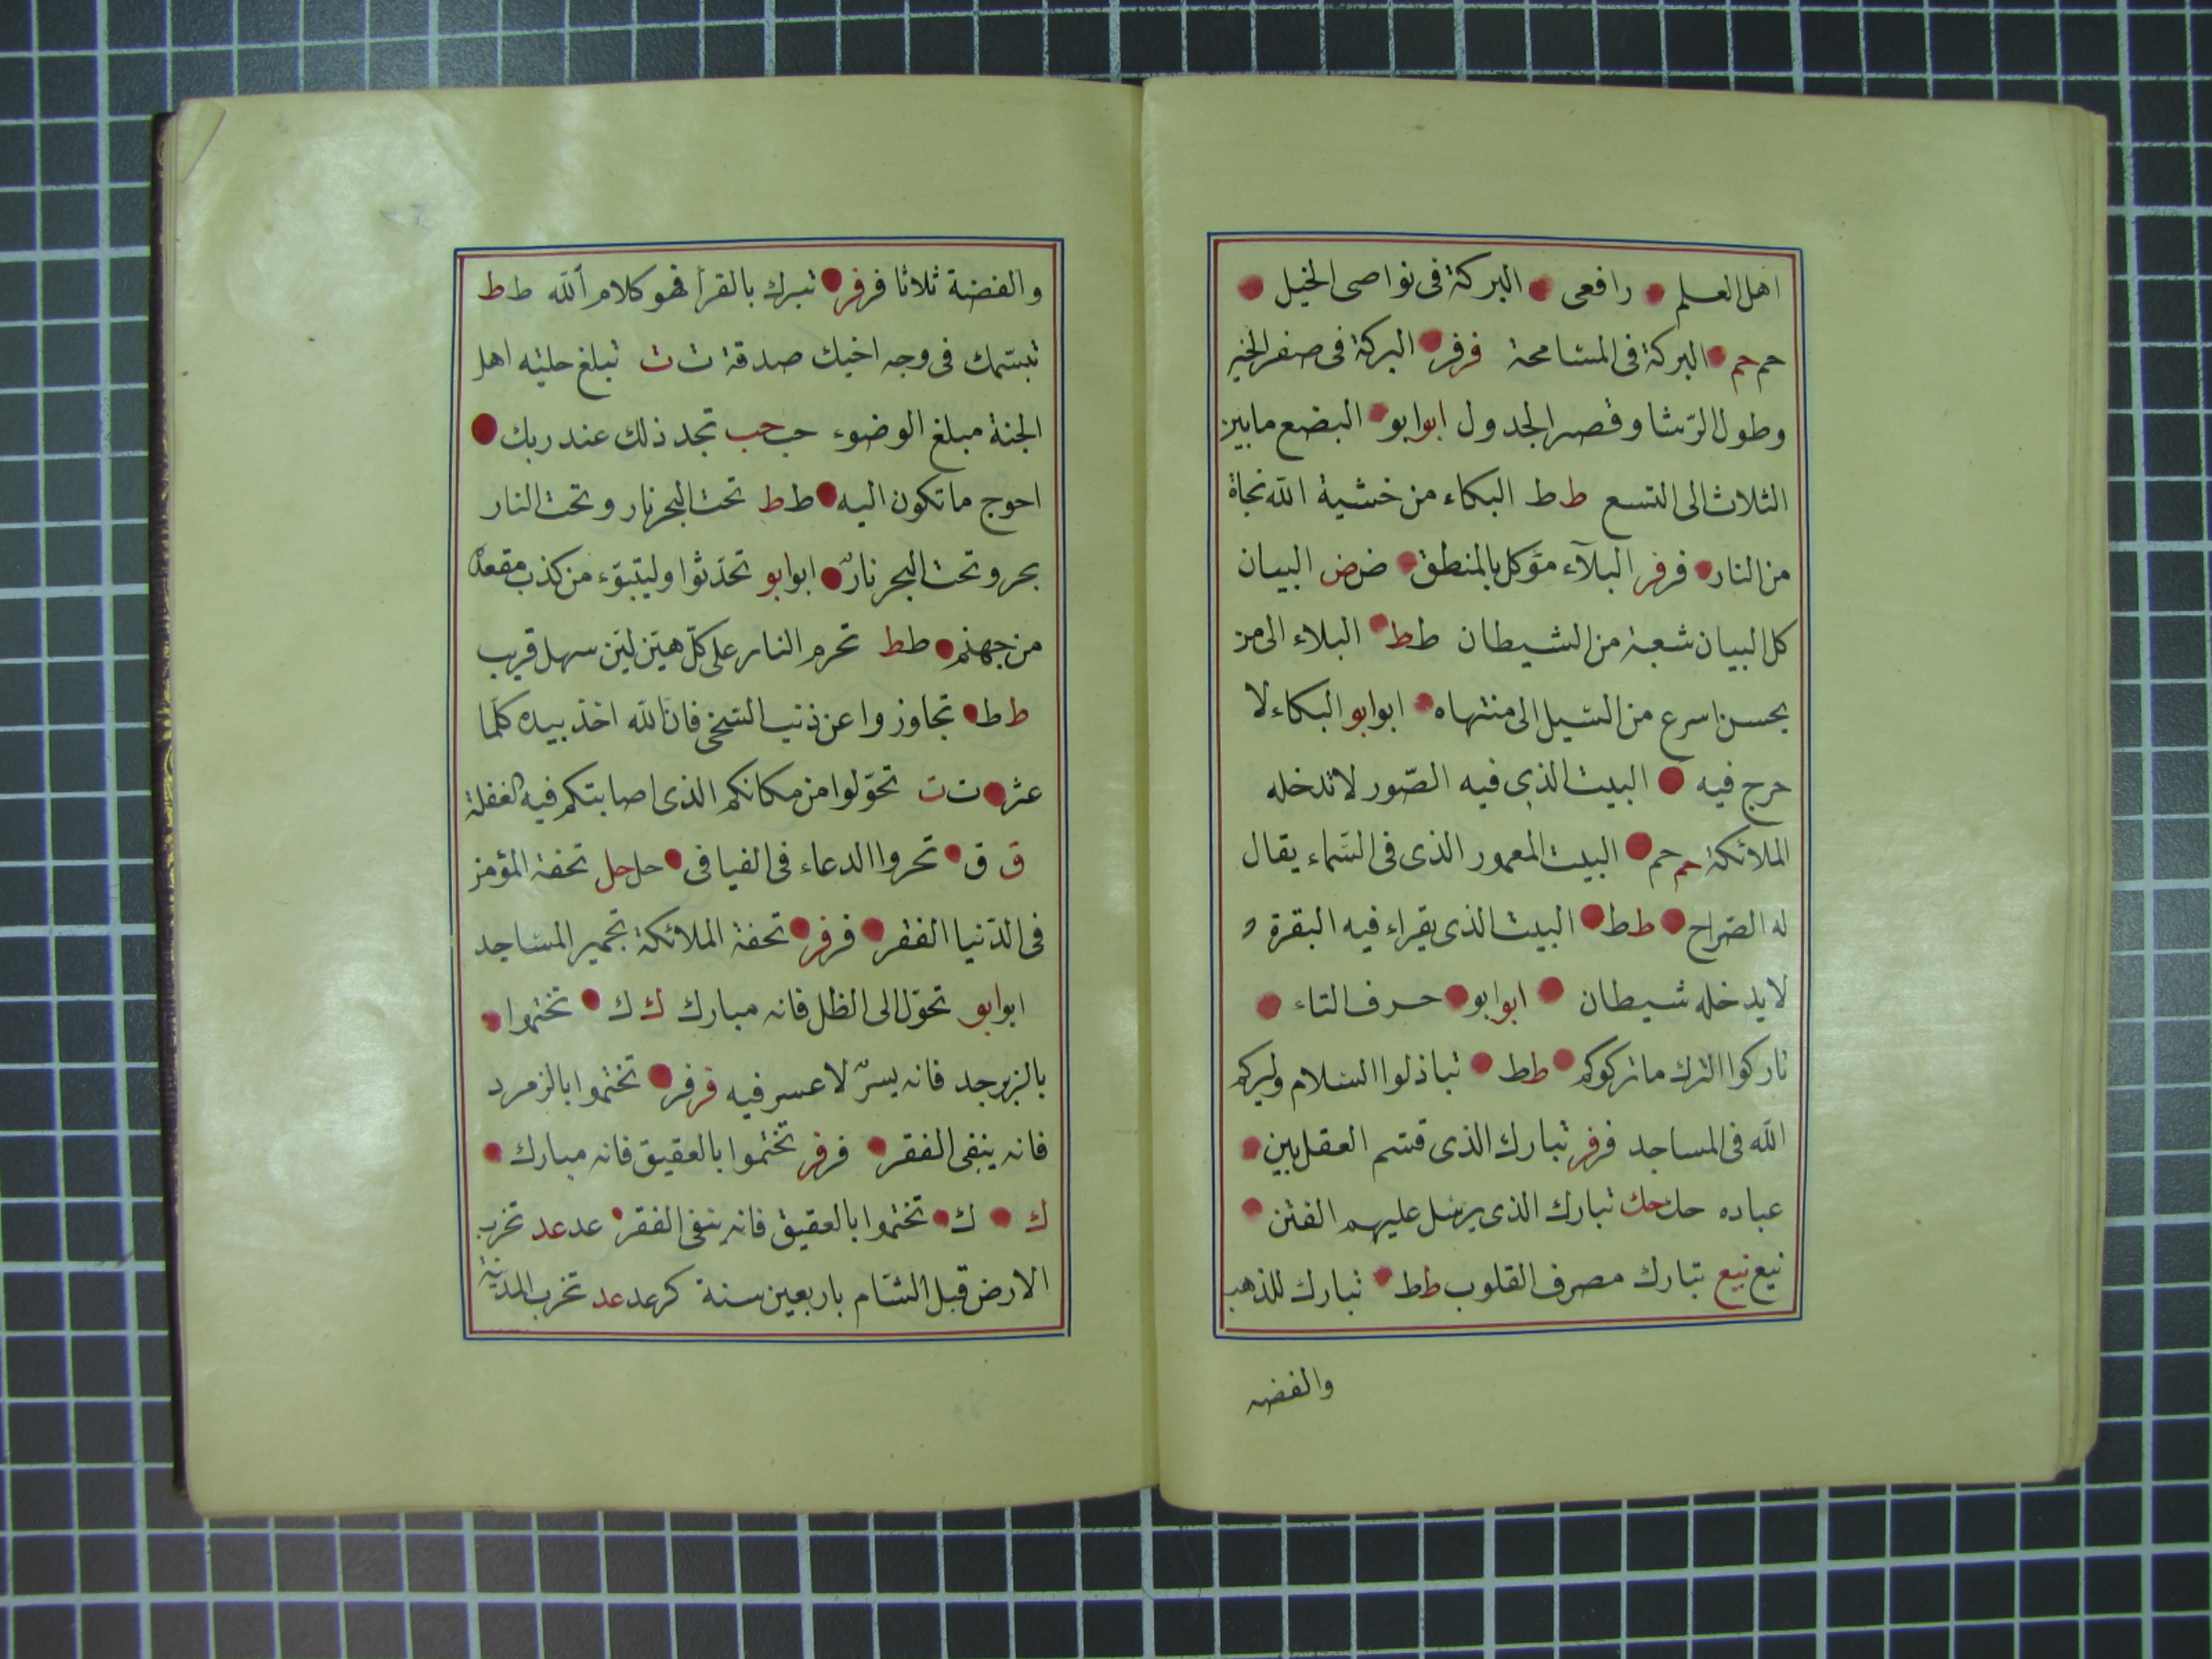 اهل العلم رافعى البركة فى نواصى الخيل
حم حم البركة فى المسامحة فر فر البركة فى صغر الخبز
وطول الرشا وقصر الجدول ابو ابو البضع ما بين
الثلاث الى التسع ط ط البكاء من خشية الله نجاة
من النار فر فر البلآء مؤكل بالمنطق ض ض البيان
كل البيان شعبة من الشيطان ط ط البلاء الى من
يحسن اسرع من السيل الى منتهاه ابو ابو البكاء لا
حرج فيه البيت الذى فيه الصّور لا تدخله
الملائكة حم حم البيت المعمور الذى فى السّماء يقال
له الصّراح ط ط البيت الذى يقراء فيه البقرة و
لا يدخله شيطان ابو ابو حرف التاء
تاركوا الترك ما تركوكم ط ط تباذلوا السّلام وليركم
الله فى المساجد فر فر تبارك الذى قسّم العقل بين
عباده حك حك تبارك الذى يرسل عليهم الفتن
نيع نيع تبارك مصرف القلوب ط ط تبارك للذهب
والفضه
والفضة ثلاثا فر فر تبرك بالقرأ فهو كلام الله ط ط
تبسّمك فى وجه اخيك صدقة ت ت تبلغ حليه اهل
الجنة مبلغ الوضوء حب حب تجد ذلك عند ربك
احوج ما تكون اليه ط ط تحت البحر نار وتحت النار
بحر وتحت البحر نارٌ ابو ابو تحدّثوا وليتبوّء من كذب مقعده
من جهنم ط ط تحرم النار على كلّ هيّن ليّن سهل قريب
ط ط تجاوزوا عن ذنب السّخى فانّ الله اخذ بيده كلّما
عثر ت ت تحوّلوا من مكانكم الذى اصابتكم فيه الغفلة
ق ق تحروا الدعاء فى الفيافى حل حل تحفة المؤمن
فى الدّنيا الفقر فر فر تحفة الملائكة تجمير المساجد
ابو ابو تحوّل الى الظل فانه مبارك ك ك تختموا
بالزبرجد فانه يسرٌ لا عسر فيه فر فر تختموا بالزمرد
فانه ينفى الفقر فر فر تختموا بالعقيق فانه مبارك
ك ك تختموا بالعقيق فانه ينفى الفقر عد عد تخرب
الارض قبل الشّام باربعين سنة كر عد عد تخرب المدينة